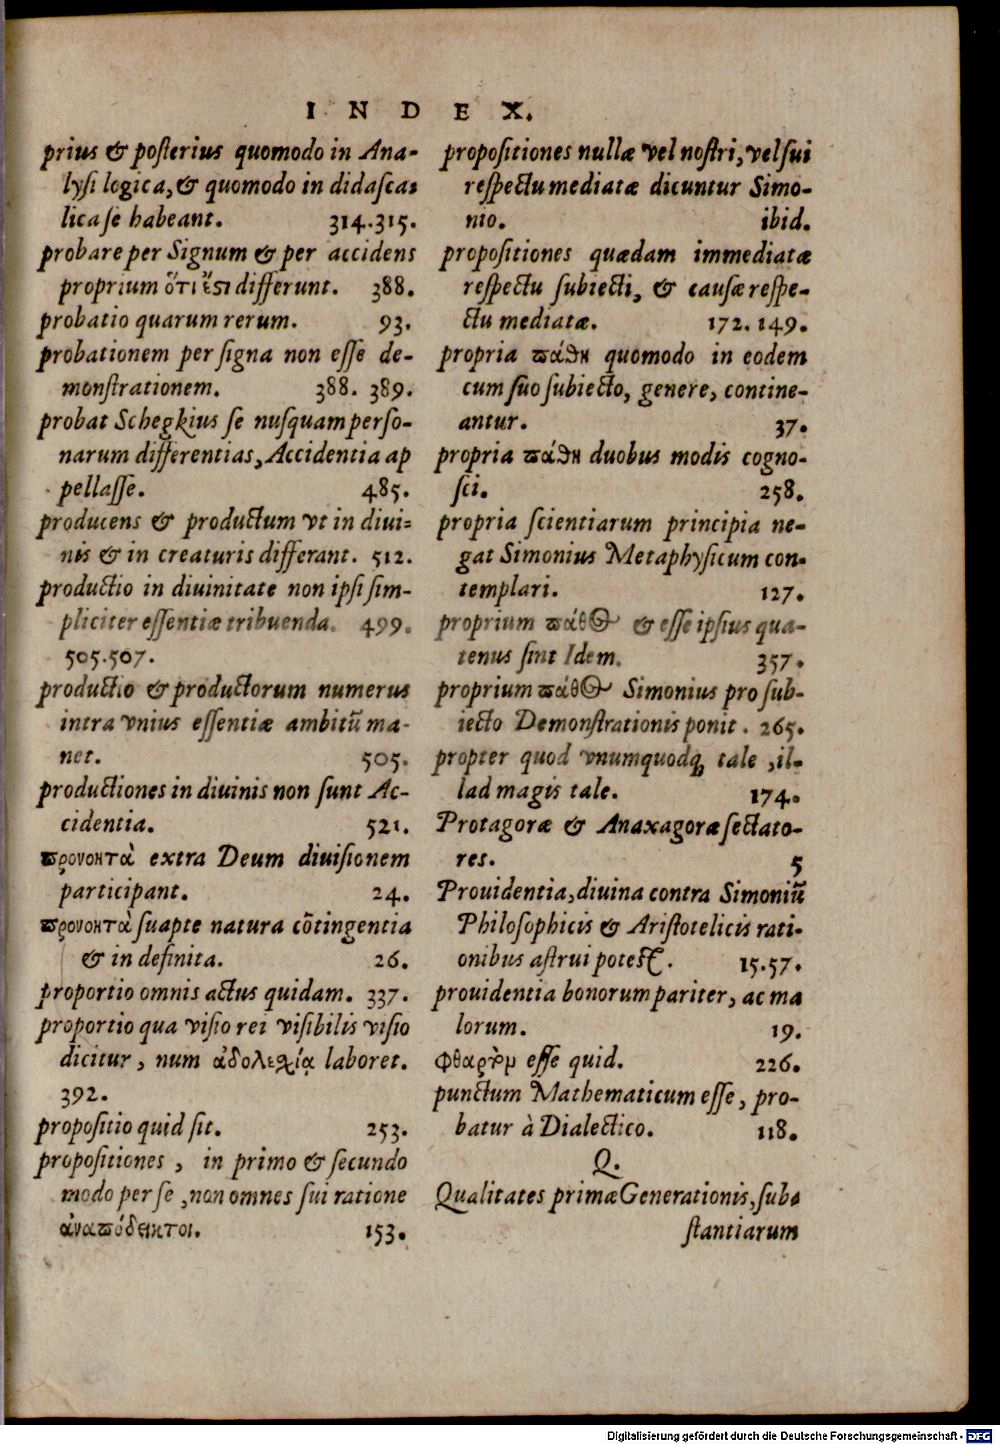 INDEX.
prius & posterius quomodo in Ana-
lysi logica, & quomodo in didasca-
lica se habeant. 314.315.
probare per Signum & per accidens
proprium ὅτι ἔςι differunt. 388.
probatio quarum rerum. 93.
probationem per signa non esse de-
monstrationem. 388. 389.
probat Schegkius se nusquam perso-
narum differentias, Accidentia ap
pellasse. 485.
producens & productum vt in diui-
nis & in creaturis differant. 512.
productio in diuinitate non ipsi sim-
pliciter essentiæ tribuenda. 499.
505.507.
productio & productorum numerus
intra vnius essentiæ ambitũ ma-
net. 505.
productiones in diuinis non sunt Ac-
cidentia. 521.
προνοητὰ extra Deum diuisionem
participant. 24.
προνοητὰ suapte natura cõtingentia
& in definita. 26.
proportio omnis actus quidam. 337.
proportio qua visio rei visibilis visio
dicitur, num ἀδολεχίᾳ laboret.
392.
propositio quid sit. 253.
propositiones, in primo & secundo
modo per se, non omnes sui ratione
ἀναπόδεικτοι. 153.
propositiones nullæ vel nostri, vel sui
respectu mediatæ dicuntur Simo-
nio. ibid.
propositiones quædam immediatæ
respectu subiecti, & causæ respe-
ctu mediatæ. 172. 149.
propria πάθη quomodo in eodem
cum suo subiecto, genere, contine-
antur. 37.
propria πάθη duobus modis cogno-
sci. 258.
propria scientiarum principia ne-
gat Simonius Metaphysicum con-
templari. 127.
proprium πάθος & esse ipsius qua-
tenus sint Idem. 357.
proprium πάθος Simonius pro sub-
iecto Demonstrationis ponit. 265.
propter quod vnumquodq; tale, il-
lad magis tale. 174.
Protagoræ & Anaxagoræ sectato-
res. 5
Prouidentia, diuina contra Simoniũ
Philosophicis & Aristotelicis rati-
onibus astrui potest. 15.57.
prouidentia bonorum pariter, ac ma
lorum. 19.
φθαρτὸν esse quid. 226.
punctum Mathematicum esse, pro-
batur à Dialectico. 118.
Q.
Qualitates primæ Generationis, sub-
stantiarum
Digitalisierung gefördert durch die Deutsche Forschungsgemeinschaft - DFG